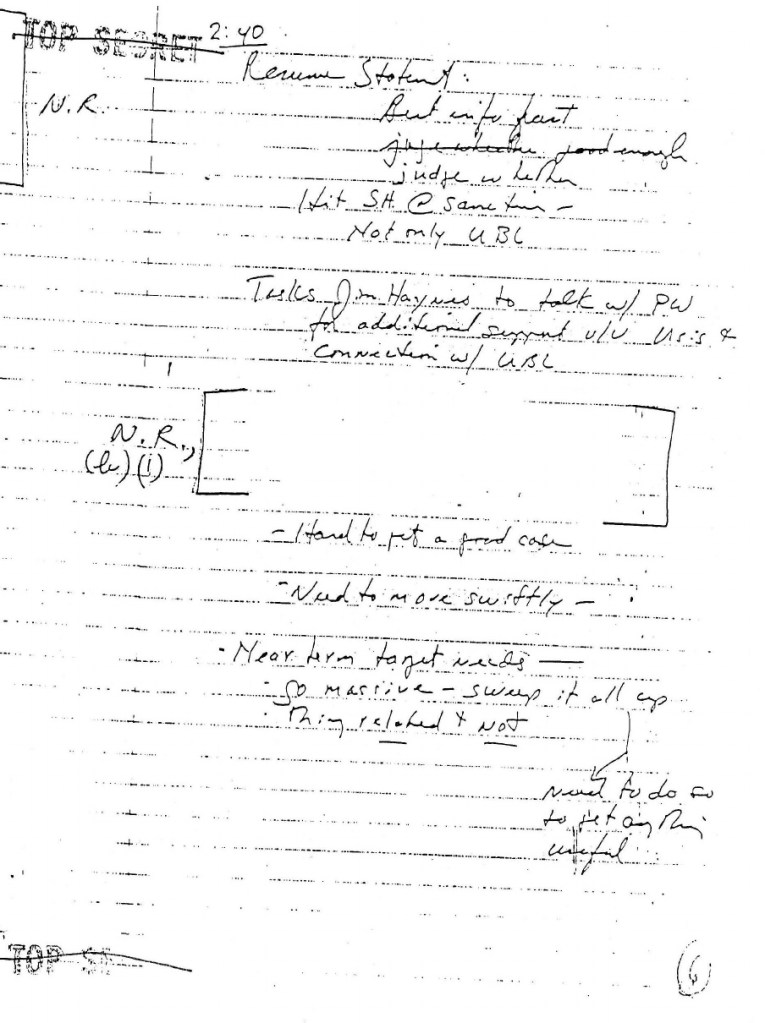 TOP SECRET 2:40
Resume Statement:
N.R.
Best info fast
judge whether good enough
judge whether
Hit S.H. @ same time -
Not only UBL
Tasks Jim Haynes to talk w/ PW
for additional support v/v Usis &
connection w/ UBL
N.R.,
(b)(1)
- Hard to get a good case
- Need to move swiftly -
· Near term target needs —
· Go massive - sweep it all up
· Thing related & not
need to do so
to get anything
useful
TOP SE
6